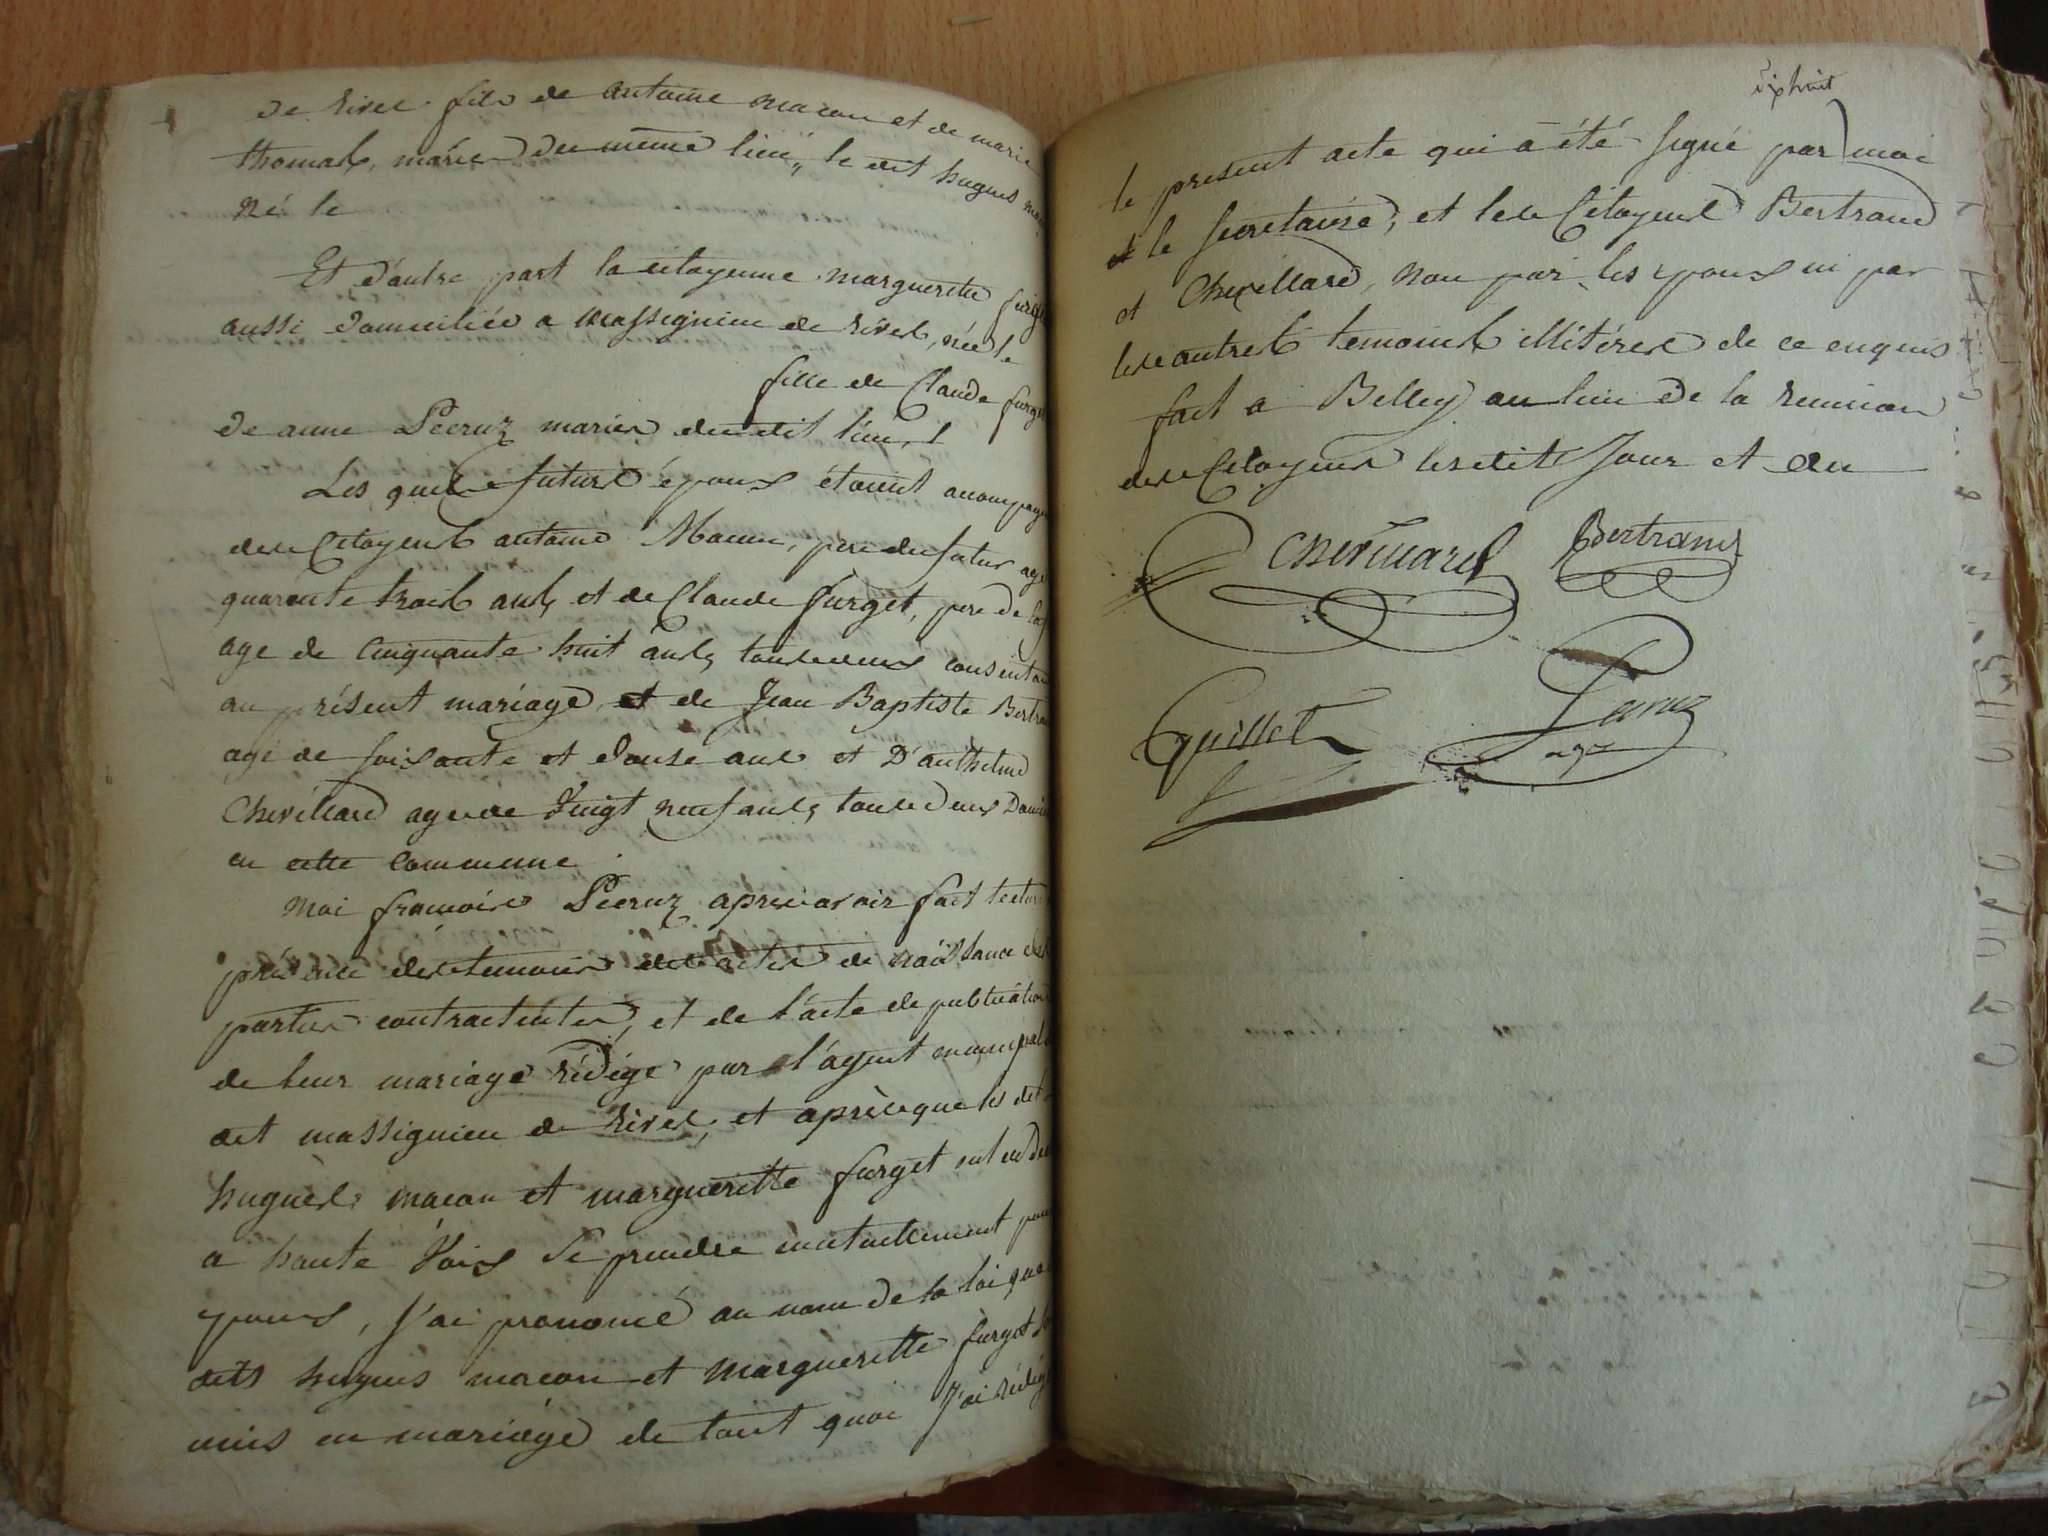 de rives fils de antoine macon et de marie
thomas, mariés du meme lieu, le dit hugues
né le
Et d'autre part la citoyenne marguerite
aussi domiciliée a massignieu de rives, née le
fille de Claude furget
de anne Pecruz mariés du dit lieu,
Les quels futurs époux étoient
des Citoyens antoine Macon, pere du futur agé
quarente trois ans, et de Claude furget, pere de la
age de cinquante huit ans, tous deux
au présent mariage et de Jean Baptiste
agé de soisante et douse ans et D'anthelme
Chevillard agé de vingt neuf ans, tous deux
en cette commune
moi francois Pecruz apres avoir fait
présence des temoins des actes de naissance des
parties contractentes, et de l'acte de publication
de leur mariage rédigé par l'agent municipal
dit massignieu de rives, et après que les dits
hugues macon et marguerite furget ont
a haute voix se prendre mutuellement pour
epoux, j'ai prononcé au nom de la loi que
dits hugues macon et marguerite furget
unis en mariage de tout quoi j'ai rédigé
dixhuit
le present acte qui a été signé par moi
et le secretaire, et les Citoyens Bertrand
et Chevillard, non par les epoux ni par
les autres temoins illitérés de ce enquis
fait a Belley au lieu de la reunion
des Citoyens les dits jour et an
Chevillard Bertrand
Guillot Pecruz
agt